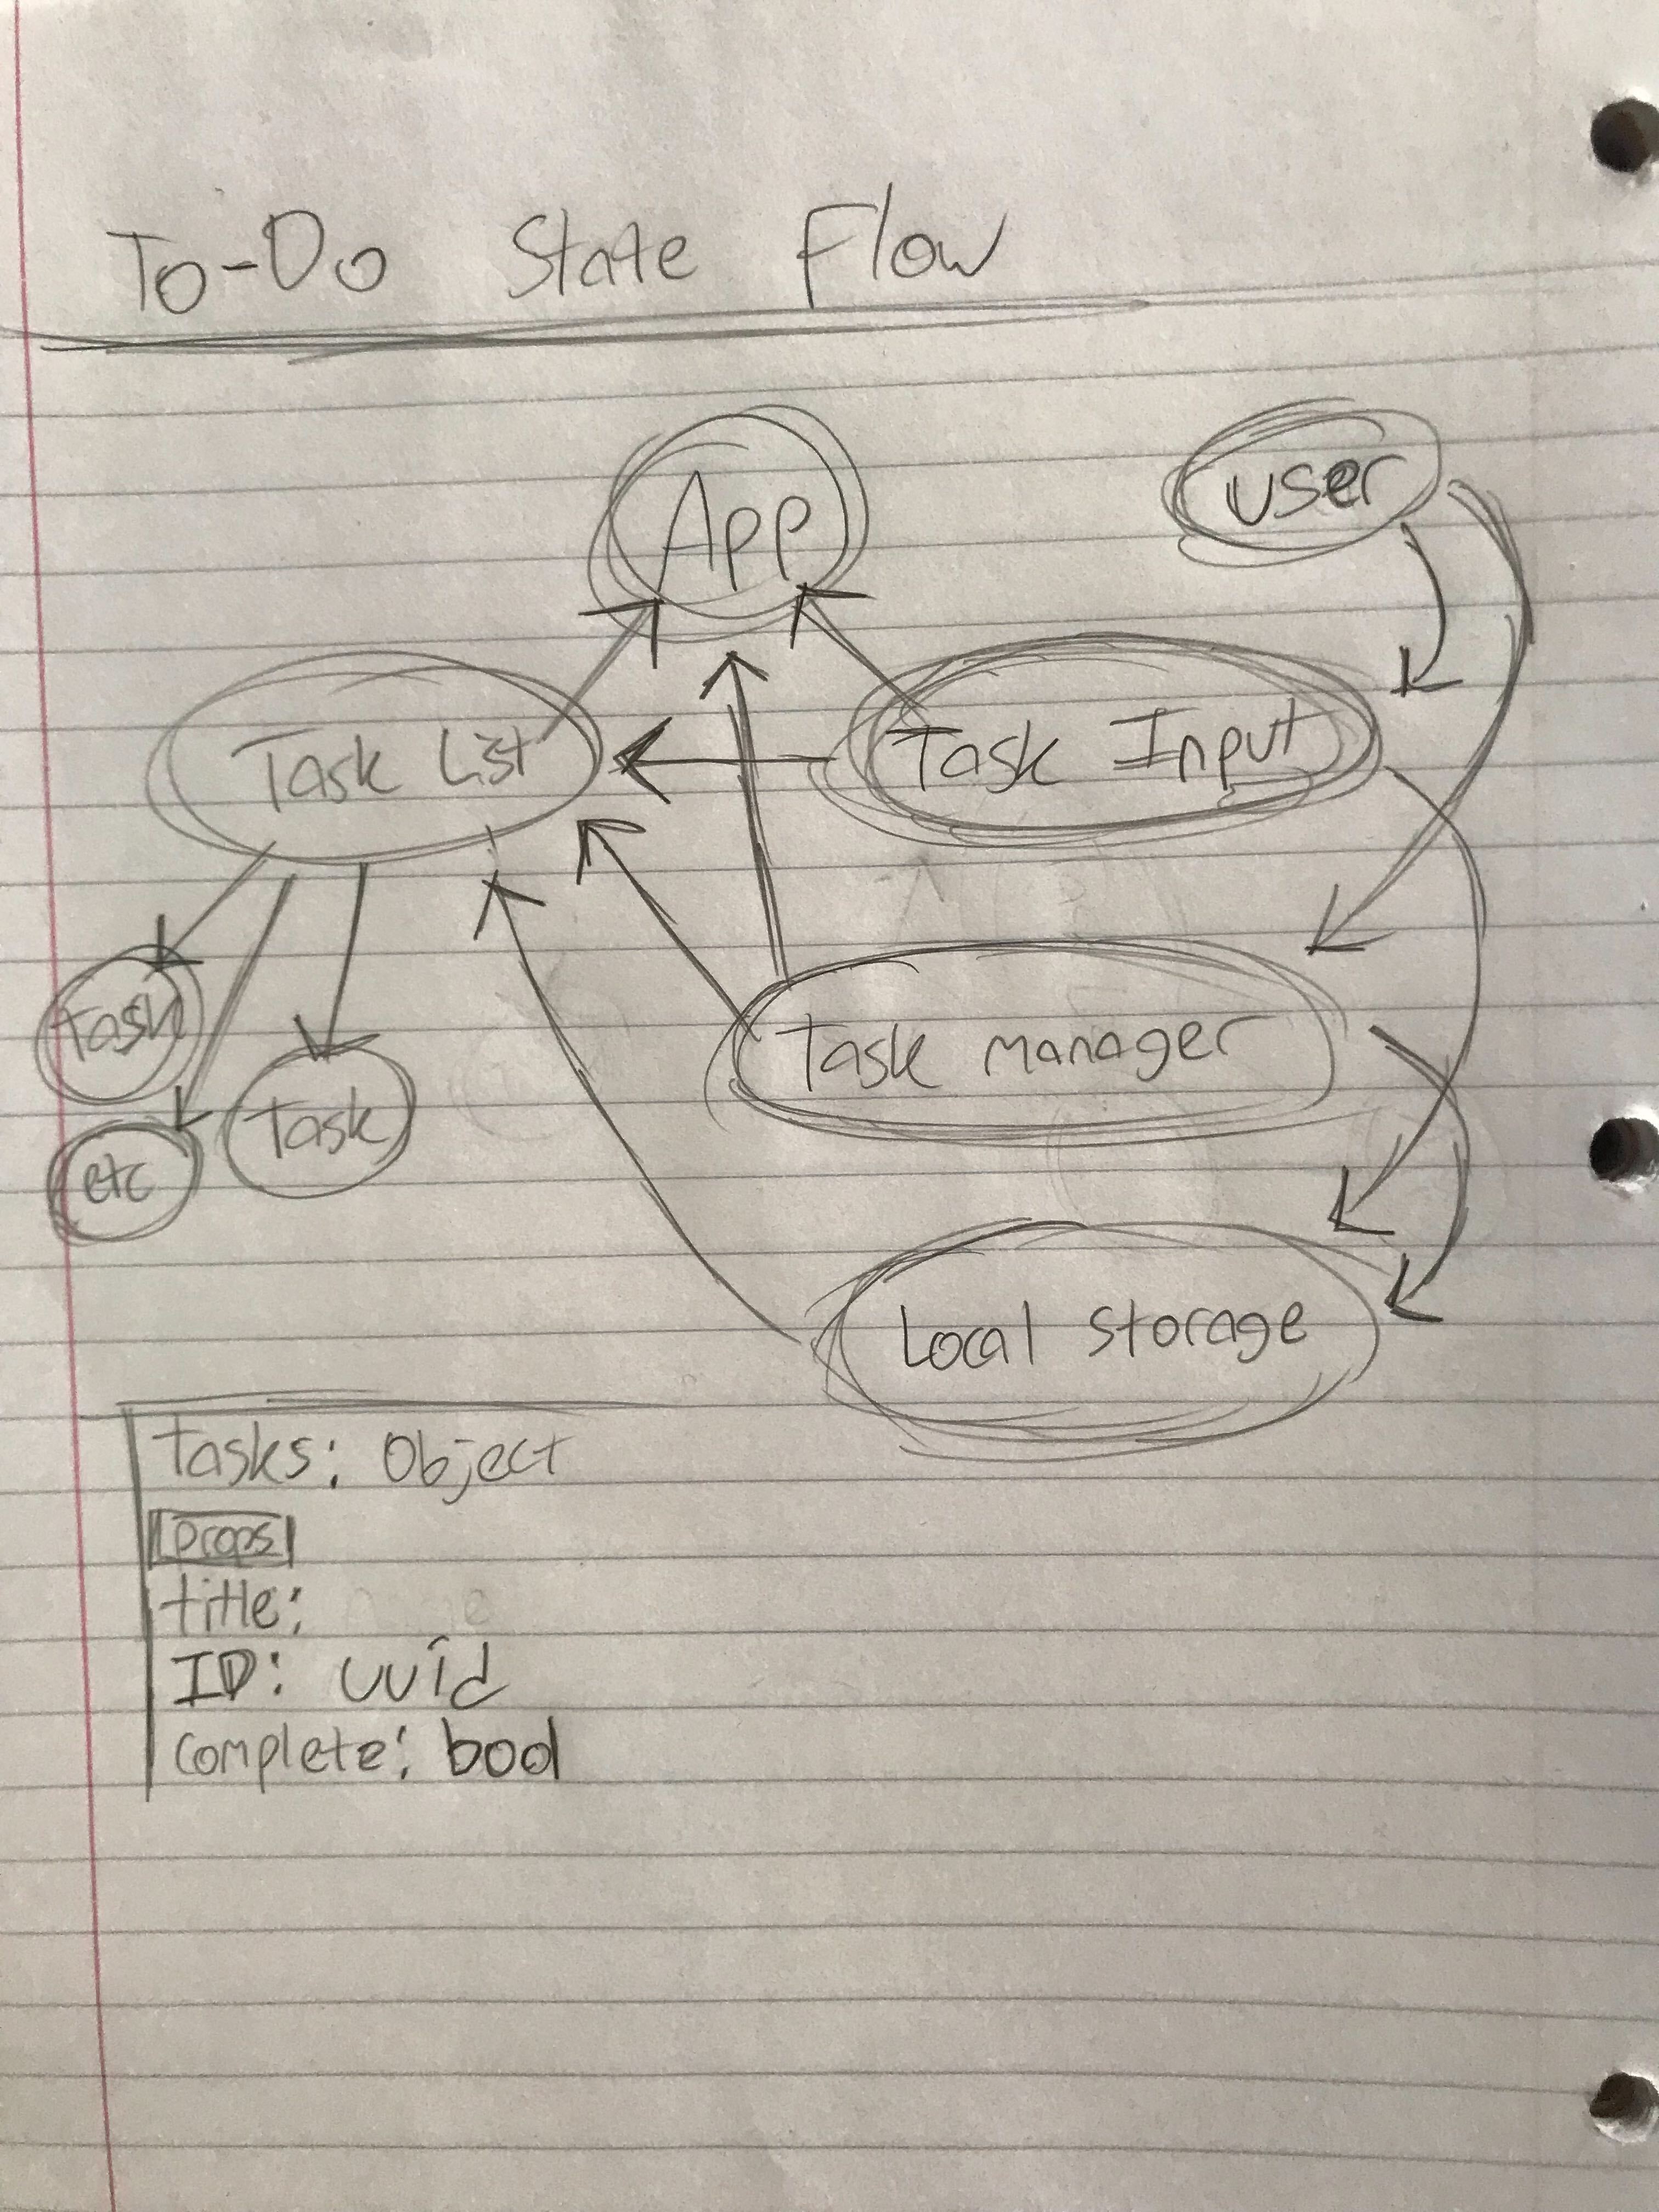 To-Do State Flow
App
user
Task List
Task Input
Task
Task manager
Task
etc
Local storage
Tasks: Object
props
title:
ID: uuid
complete: bool